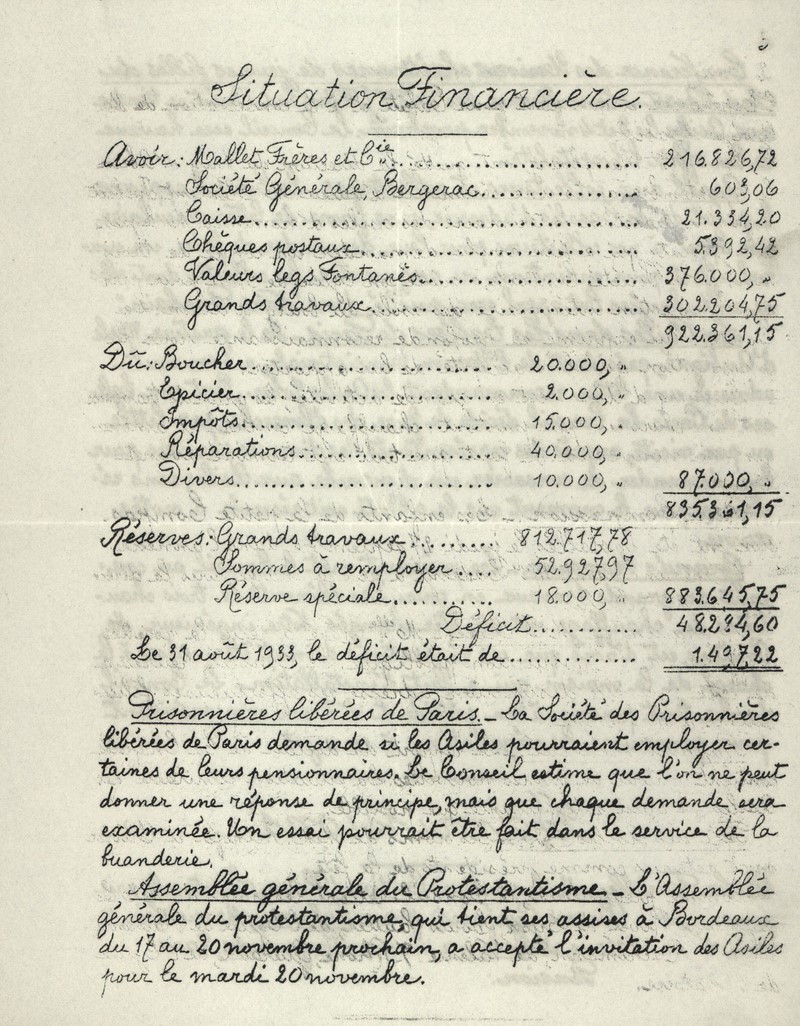 Situation Financière.
Avoir: Mallet Frères et Cie............................ 216.826,72
Société Générale, Bergerac.................... 603,06
Caisse............................................. 21.334,20
Chèques postaux................................ 5.392,42
Valeurs legs Fontanès......................... 376.000, "
Grands travaux................................. 302.204,75
922.361,15
Dû: Boucher........................ 20.000, "
Epicier.......................... 2.000, "
Impôts.......................... 15.000, "
Réparations.................... 40.000, "
Divers........................... 10.000, " 87.000, "
835.361,15
Réserves: Grands travaux......... 812.717,78
Sommes à remployer.... 52.927,97
Réserve spéciale........... 18.000, " 883.645,75
Déficit............ 48.284,60
Le 31 août 1933, le déficit était de.............. 1.497,22
Prisonnières libérées de Paris. _ La Société des Prisonnières
libérées de Paris demande si les Asiles pourraient employer cer-
taines de leurs pensionnaires. Le Conseil estime que l'on ne peut
donner une réponse de principe, mais que chaque demande sera
examinée. Un essai pourrait être fait dans le service de la
buanderie.
Assemblée générale du Protestantisme _ L'Assemblée
générale du protestantisme, qui tient ses assises à Bordeaux
du 17 au 20 novembre prochain, a accepté l'invitation des Asiles
pour le mardi 20 novembre.